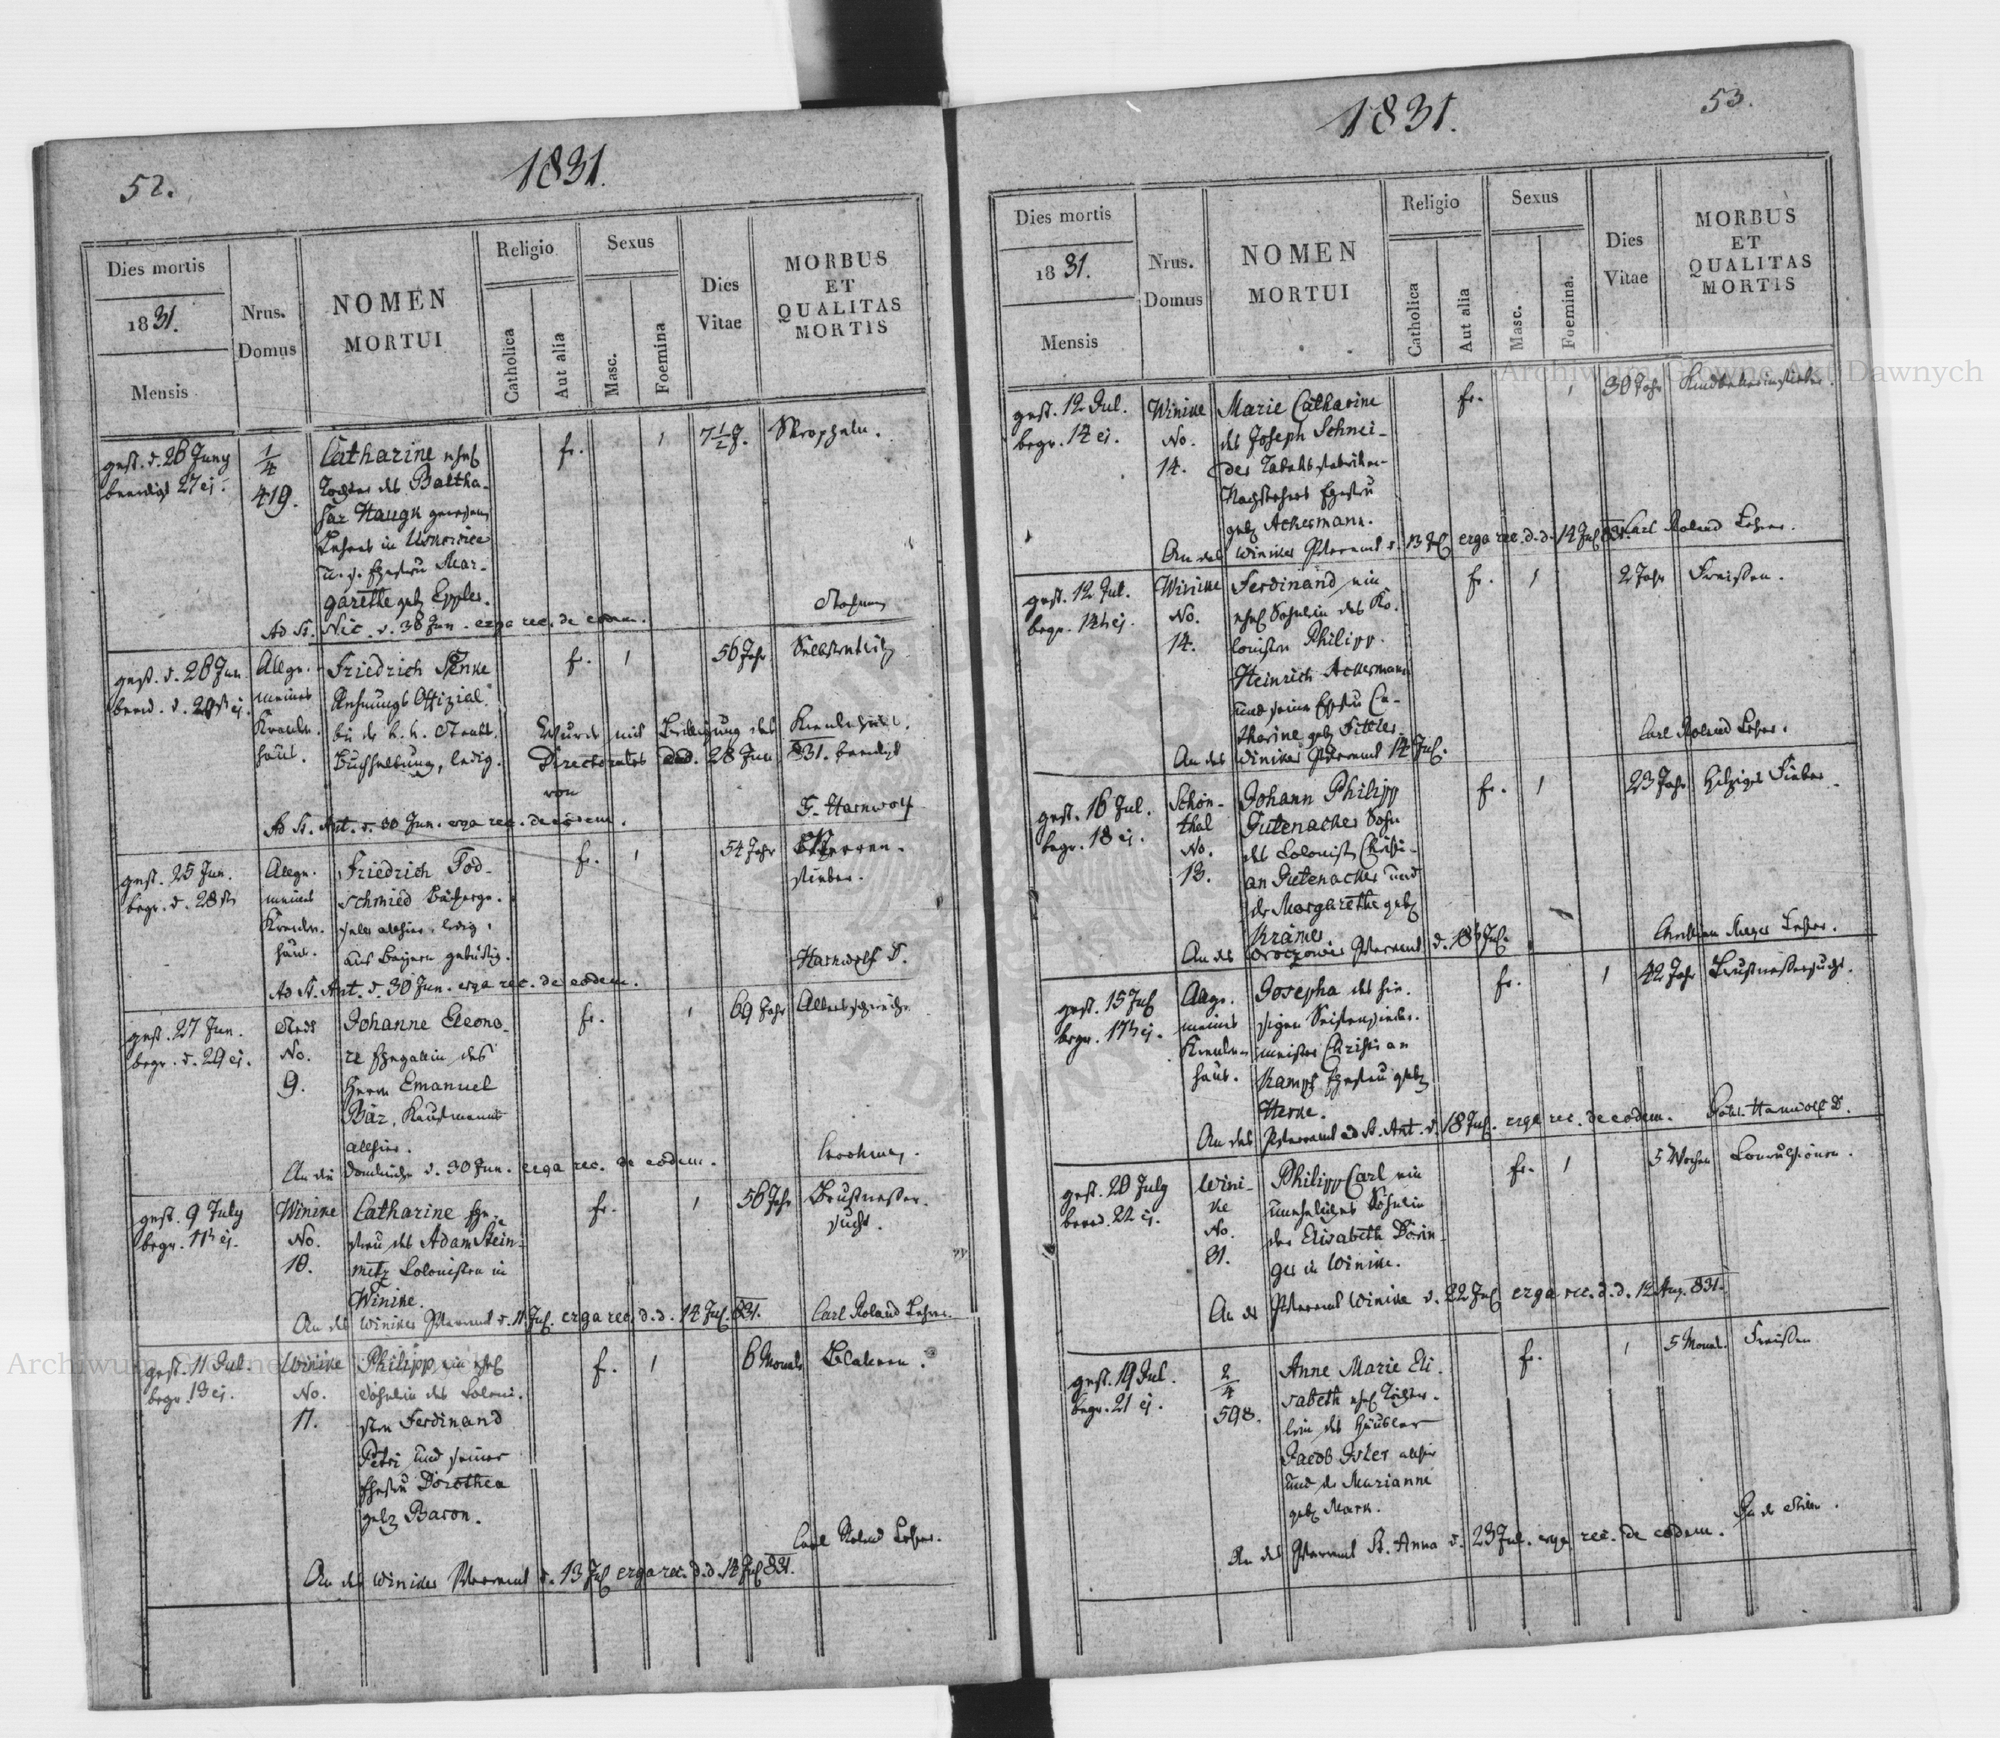 52.
1831.
Dies mortis
1831.
Mensis
Nrus.
Domus
NOMEN
MORTUI
Religio
Catholica
Aut alia
Sexus
Masc.
Foemina
Dies
Vitae
MORBUS
ET
QUALITAS
MORTIS
gest. d. 26 Juny
beerdigt 27 ej.
1/4
419.
Catharine ehel.
Tochter des Baltha-
sar Haugk
Lehrers in
u. s. Ehefrau Mar-
garethe geb. Eppler.
fr.
1
7 1/2 J.
Skropheln.
Ad St. Nic. d. 30 Jun. erga rec. de eodem.
gest. d. 28 Jun
beerd. d. 29 ej.
Allge-
meines
Kranken-
haus.
Friedrich
Rechnungs Offizial
bei der k. k. Staats-
Buchhaltung, ledig.
fr.
1
56 Jahr
Wurde mit Bewilligung des
Directorates dtd. 28 Jun 831. beerdigt
von
Ad St. Ant. d. 30 Jun. erga rec. de eodem.
gest. 25 Jun.
begr. d. 28
Allge-
meines
Kranken-
haus.
Friedrich Tod-
schmied
allhier, ledig,
aus Bayern gebürtig.
fr.
1
54 Jahr
fieber.
Ad St. Ant. d. 30 Jun. erga rec. de eodem.
gest. 27 Jun.
begr. d. 29 ej.
Stadt
No.
9.
Johanne Eleono-
re Ehegattin des
Herrn Emanuel
Bär, Kaufmanns
allhier.
fr.
1
69 Jahr
Altersschwäche
An die Domkirche d. 30 Jun. erga rec. de eodem.
gest. 9 July
begr. 11 ej.
Winike
No.
18.
Catharine Ehe-
frau des Adam Stein-
metz Colonisten in
Winike.
fr.
1
56 Jahr
Brustwasser-
sucht.
An das Winiker Pfarramt d. 11 Jul. erga rec. d. d. 14 Jul. 831.
Carl Roland Lehrer.
gest. 11 Jul.
begr. 13 ej.
Winike
No.
17.
Philipp, ein ehel.
Söhnlein des Coloni-
sten Ferdinand
Petri und seiner
Ehefrau Dorothea
geb. Baron.
fr.
1
6 Monate
Blattern.
Carl Roland Lehrer.
An das Winiker Pfarramt d. 13 Jul. erga rec. d. d. 14 Jul 831.
1831.
53.
Dies mortis
1831.
Mensis
Nrus.
Domus
NOMEN
MORTUI
Religio
Catholica
Aut alia
Sexus
Masc.
Foemina.
Dies
Vitae
MORBUS
ET
QUALITAS
MORTIS
gest. 12 Jul.
begr. 14 ej.
Winike
No.
14.
Marie Catharine
des Joseph Schnei-
der Tabaksfabriken-
Ehefrau
geb. Ackermann.
fr.
1
30 Jahr
An das Winiker Pfarramt d. 13 Jul. erga rec. d. d. 14 Jul 831.
Carl Roland Lehrer.
gest. 12 Jul.
begr. 14 ej.
Winike
No.
14.
Ferdinand, ein
ehel. Söhnlein des Ko-
lonisten Philipp
Heinrich Ackermann
und seiner Ehefrau Ca-
tharine geb.
fr.
1
2 Jahr
Fraisen.
Carl Roland Lehrer.
An das Winiker Pfarramt 14 Jul.
gest. 16 Jul.
begr. 18 ej.
Schön-
thal
No.
13.
Johann Philipp
Gutenacker Sohn
des Colonist. Christi-
an Gutenacker und
der Margarethe geb.
Krämer.
fr.
1
23 Jahr
Hitziges Fieber
Lehrer.
An das Pfarramt d. 18 Jul.
gest. 15 Jul
begr. 17 ej.
Allge-
meines
Kranken-
haus.
Josepha des hie-
sigen Seifensieder-
meisters Christian
Kampf Ehefrau geb.
fr.
1
42 Jahr
Brustwassersucht.
An das Pfarramt ad St. Ant. d. 18 Jul. erga rec. de eodem.
gest. 20 July
beerd. 22 ej.
Wini-
ke
No.
31.
Philipp Carl ein
uneheliches Söhnlein
der Elisabeth Dörin-
ger in Winike.
fr.
1
5 Wochen
Convulsionen.
An das Pfarramt Winike d. 22 Jul erga rec. d. d. 12 Aug. 831.
gest. 19 Jul.
begr. 21 ej.
2/4
598.
Anne Marie Eli-
sabeth ehel. Töchter-
lein des Häusler
Jacob allhier
und der Marianne
geb. Mark.
fr.
1
5 Monat.
Fraisen
An das Pfarramt St. Anna d. 23 Jul. erga rec. de eodem.
Archiwum Główne Akt Dawnych